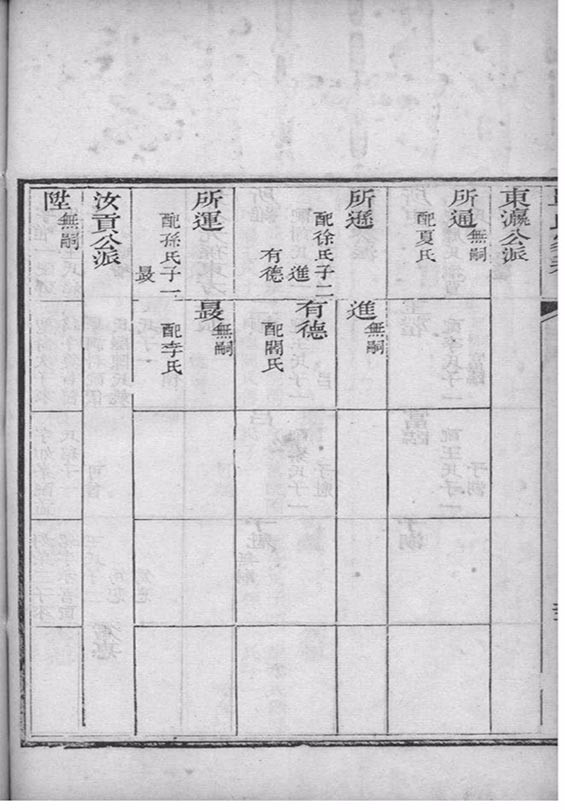 東瀛公派
所通 無嗣
配夏氏
所遜
配徐氏子二
進
有德
進 無嗣
有德
配閻氏
所運
配孫氏子一
最
最 無嗣
配李氏
汝貢公派
陞 無嗣